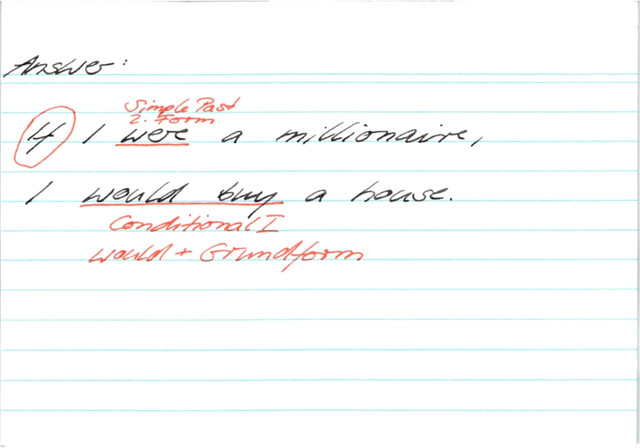 Answer:
Simple Past
2. Form
If I were a millionaire,
I would buy a house.
Conditional I
would + Grundform